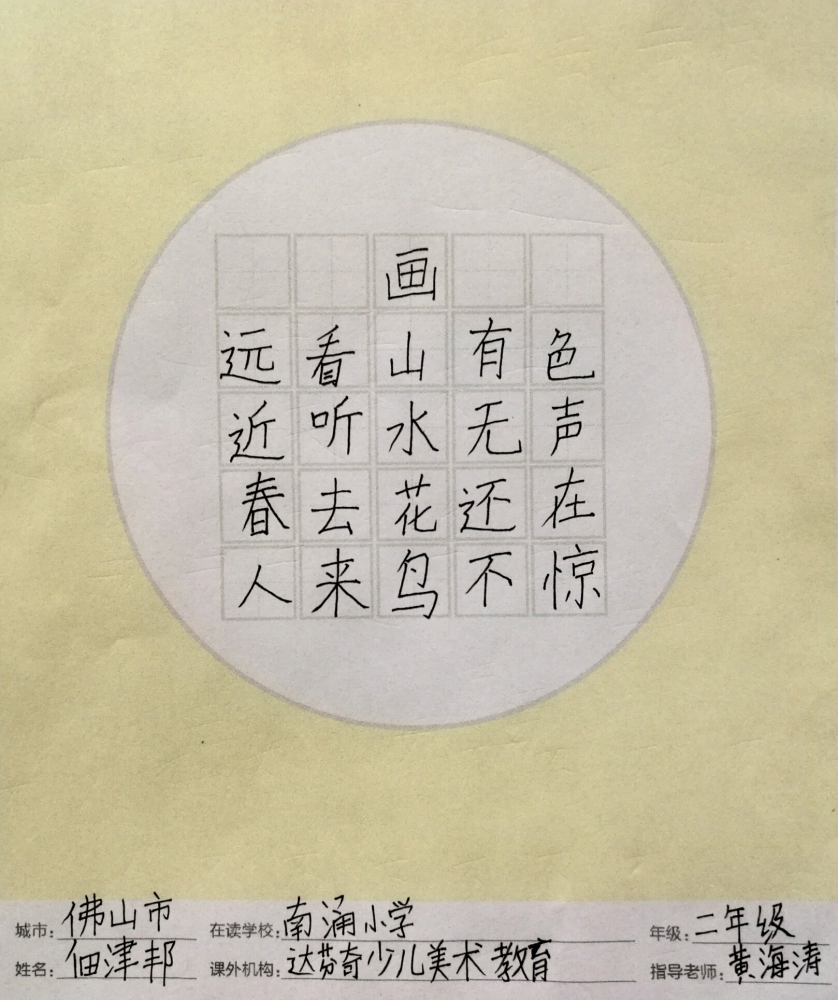 画
远看山有色
近听水无声
春去花还在
人来鸟不惊
城市: 佛山市 在读学校: 南涌小学 年级: 二年级
姓名: 佃津邦 课外机构: 达芬奇少儿美术教育 指导老师: 黄海涛